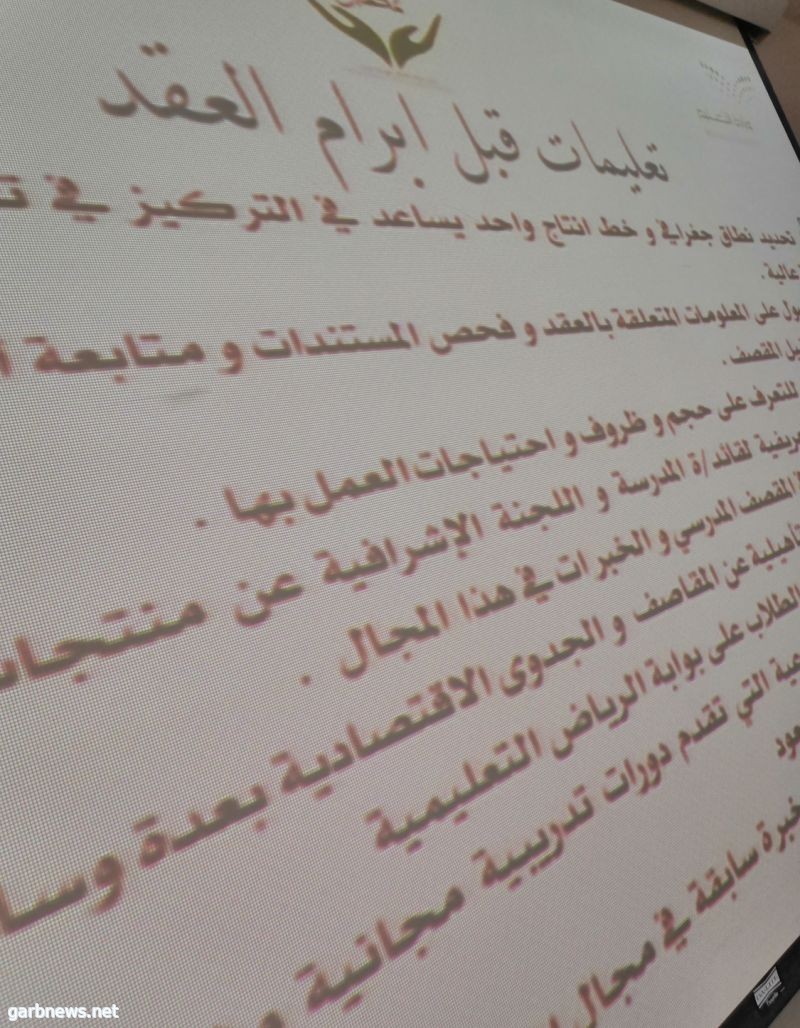 تعليمات قبل ابرام العقد
تحديد نطاق جغرافي و خط انتاج واحد يساعد في التركيز في
عالية .
على المعلومات المتعلقة بالعقد و فحص المستندات و متابعة
المقصف .
للتعرف على حجم و ظروف و احتياجات العمل بها .
لقائد/ة المدرسة و اللجنة الإشرافية عن
المقصف المدرسي و الخبرات في هذا المجال .
عن المقاصف و الجدوى الاقتصادية بعدة
الطلاب على بوابة الرياض التعليمية
التي تقدم دورات تدريبية مجانية
سابقة في مجال
garbnews.net